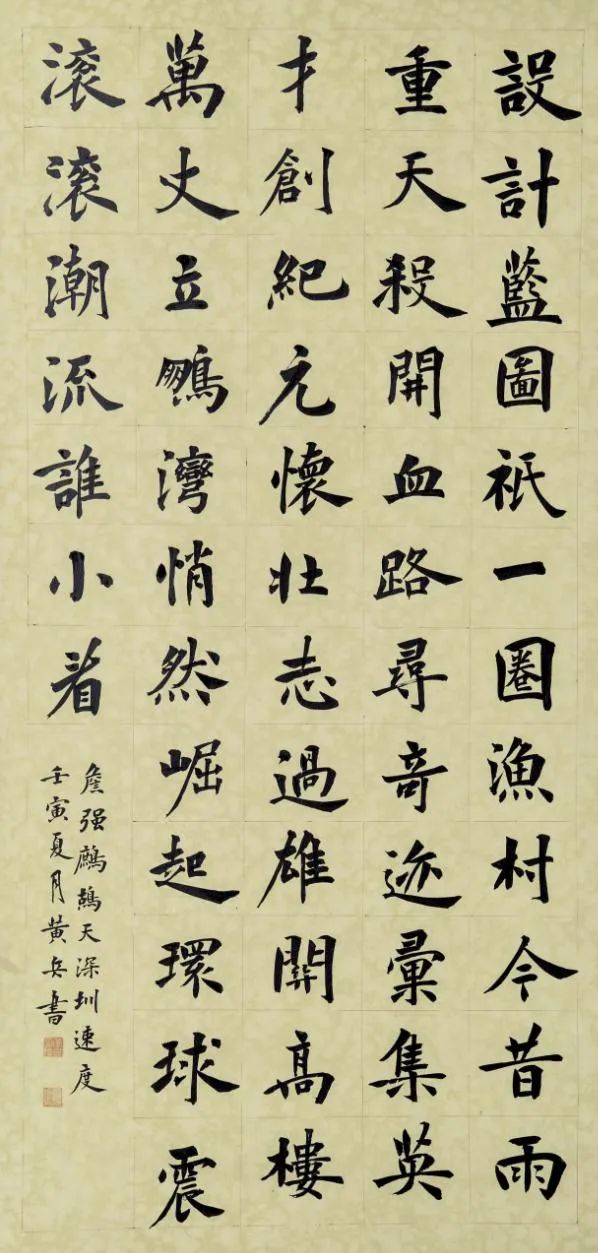 設計藍圖祇一圈漁村今昔雨
重天殺開血路尋奇迹彙集英
才創紀元懷壯志過雄關高樓
萬丈立鵬灣悄然崛起環球震
滾滾潮流誰小看
詹强鷓鴣天深圳速度
壬寅夏月黄兵書